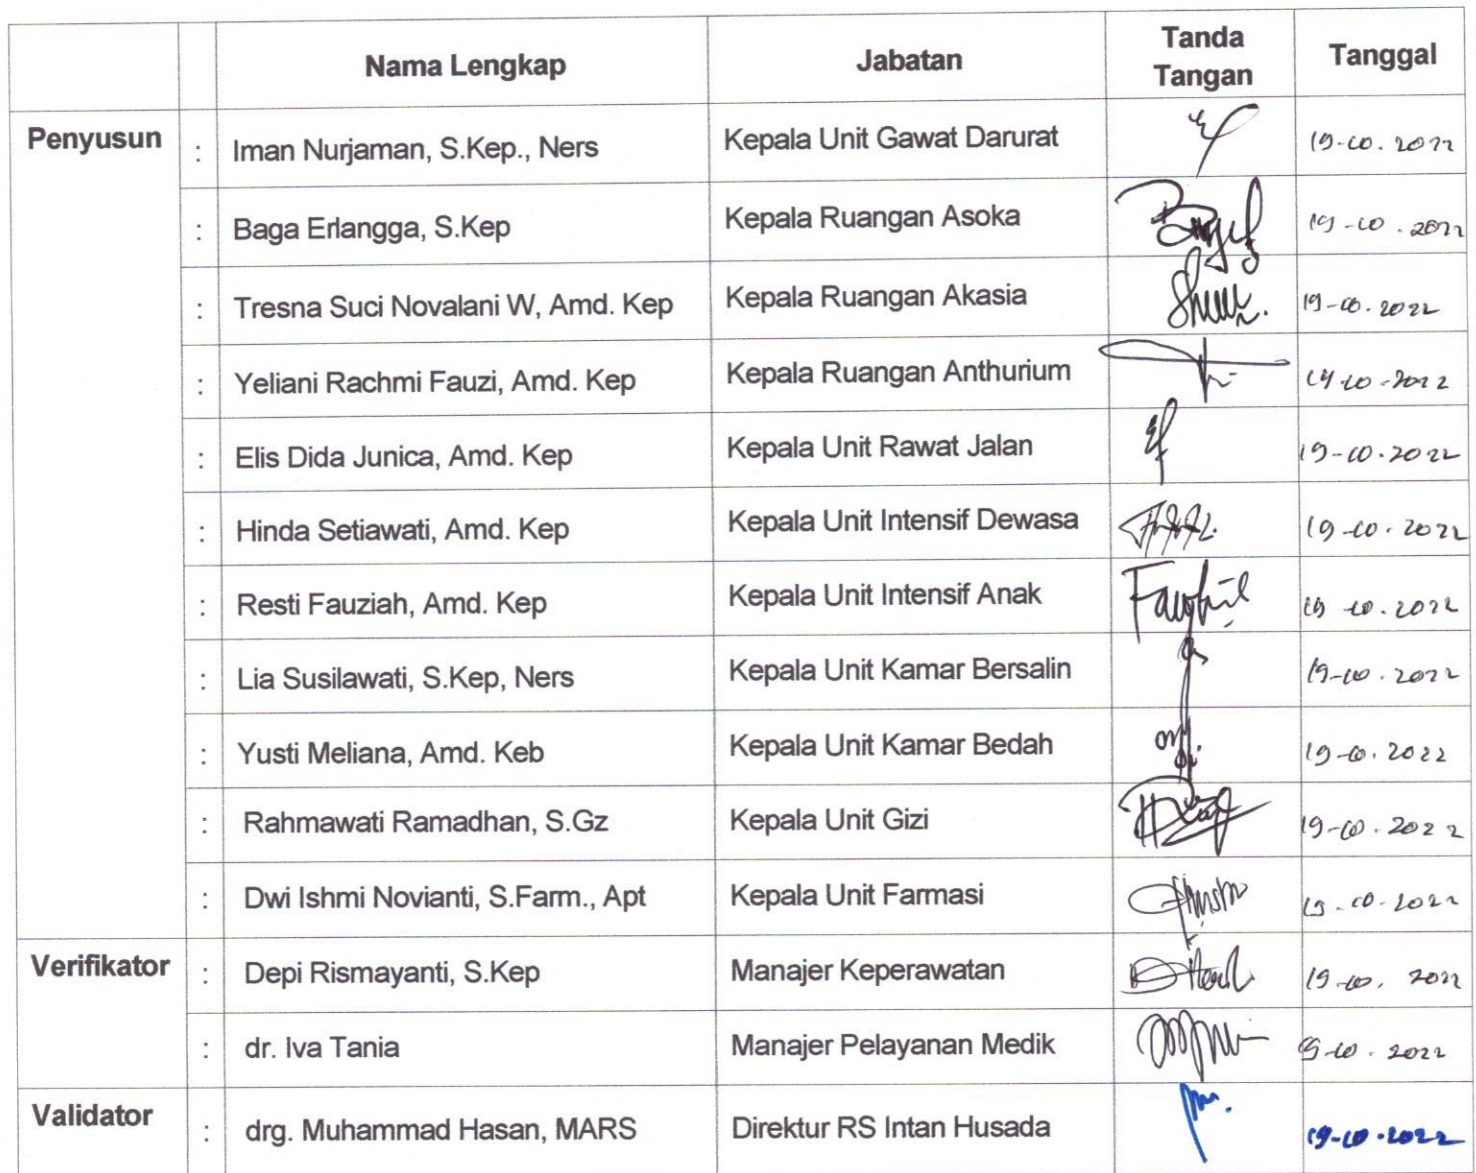 Nama Lengkap Jabatan Tanda Tangan Tanggal
Penyusun : Iman Nurjaman, S.Kep., Ners Kepala Unit Gawat Darurat 19-10.2022
: Baga Erlangga, S.Kep Kepala Ruangan Asoka 19-10.2022
: Tresna Suci Novalani W, Amd. Kep Kepala Ruangan Akasia 19-10.2022
: Yeliani Rachmi Fauzi, Amd. Kep Kepala Ruangan Anthurium 19-10-2022
: Elis Dida Junica, Amd. Kep Kepala Unit Rawat Jalan 19-10.2022
: Hinda Setiawati, Amd. Kep Kepala Unit Intensif Dewasa 19-10.2022
: Resti Fauziah, Amd. Kep Kepala Unit Intensif Anak 19 10.2022
: Lia Susilawati, S.Kep, Ners Kepala Unit Kamar Bersalin 19-10.2022
: Yusti Meliana, Amd. Keb Kepala Unit Kamar Bedah 19-10.2022
: Rahmawati Ramadhan, S.Gz Kepala Unit Gizi 19-10.2022
: Dwi Ishmi Novianti, S.Farm., Apt Kepala Unit Farmasi 19.10-2022
Verifikator : Depi Rismayanti, S.Kep Manajer Keperawatan 19-10. 2022
: dr. Iva Tania Manajer Pelayanan Medik 19-10.2022
Validator : drg. Muhammad Hasan, MARS Direktur RS Intan Husada 19-10-2022